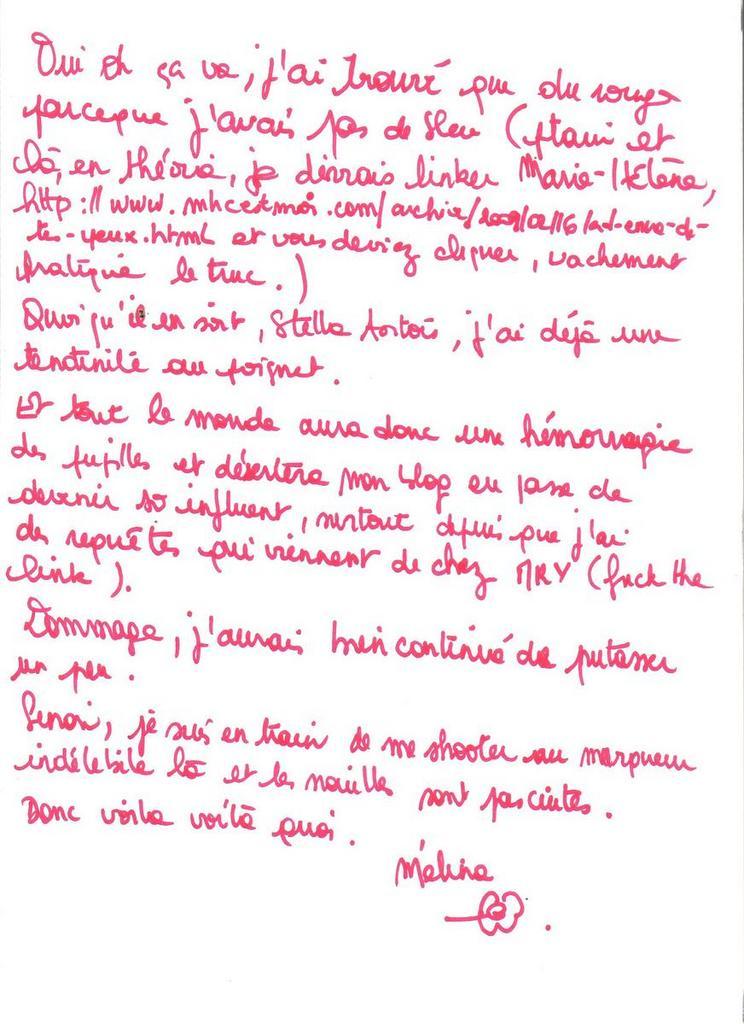 Oui oh ça va, j'ai trouvé que du rouge
parceque j'avais pas de bleu (ptain et
là, en théorie, je devrais linker Marie-Hélène,
http://www.mhcestmoi.com/archive/2009/02/16/
tes-yeux.html et vous deviez cliquer, vachement
pratique le truc.)
Quoiqu'il en soit, Stella Artois, j'ai déjà une
tendinite au poignet.
Et tout le monde aura donc une hémorragie
des pupilles et désertera mon blog en passe de
devenir so influent, surtout depuis que j'ai
des requêtes qui viennent de chez MRY (fuck the
link).
Dommage, j'aurais bien continué de putasser
un peu.
Sinon, je suis en train de me shooter au marqueur
indélébile là et les nouilles sont pas cuites.
Donc voila voilà quoi.
Mélina